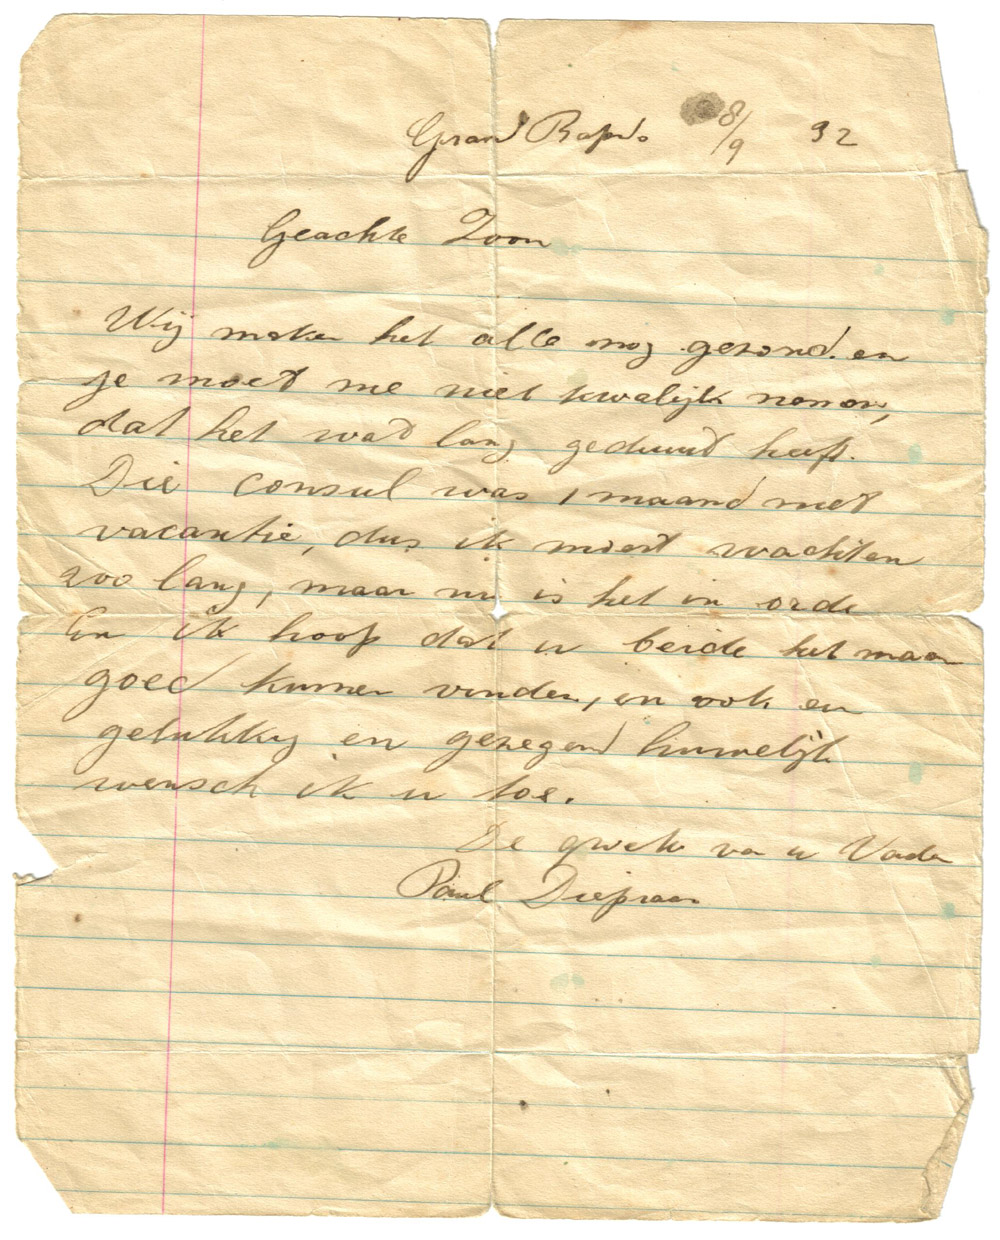 Grand Rapids 8/9 32
Geachte Zoon
Wij maken het alle nog gezond en
je moet me niet kwalijk nemen,
dat het wat lang geduurd heeft.
Die consul was 1 maand met
vacantie, dus ik moest wachten
zoo lang, maar nu is het in orde
En ik hoop dat u beide het maar
goed kunnen vinden, en ook en
gelukkig en gezegend huwelijk
wensch ik u toe.
De groete van u Vader
Paul Diepraam